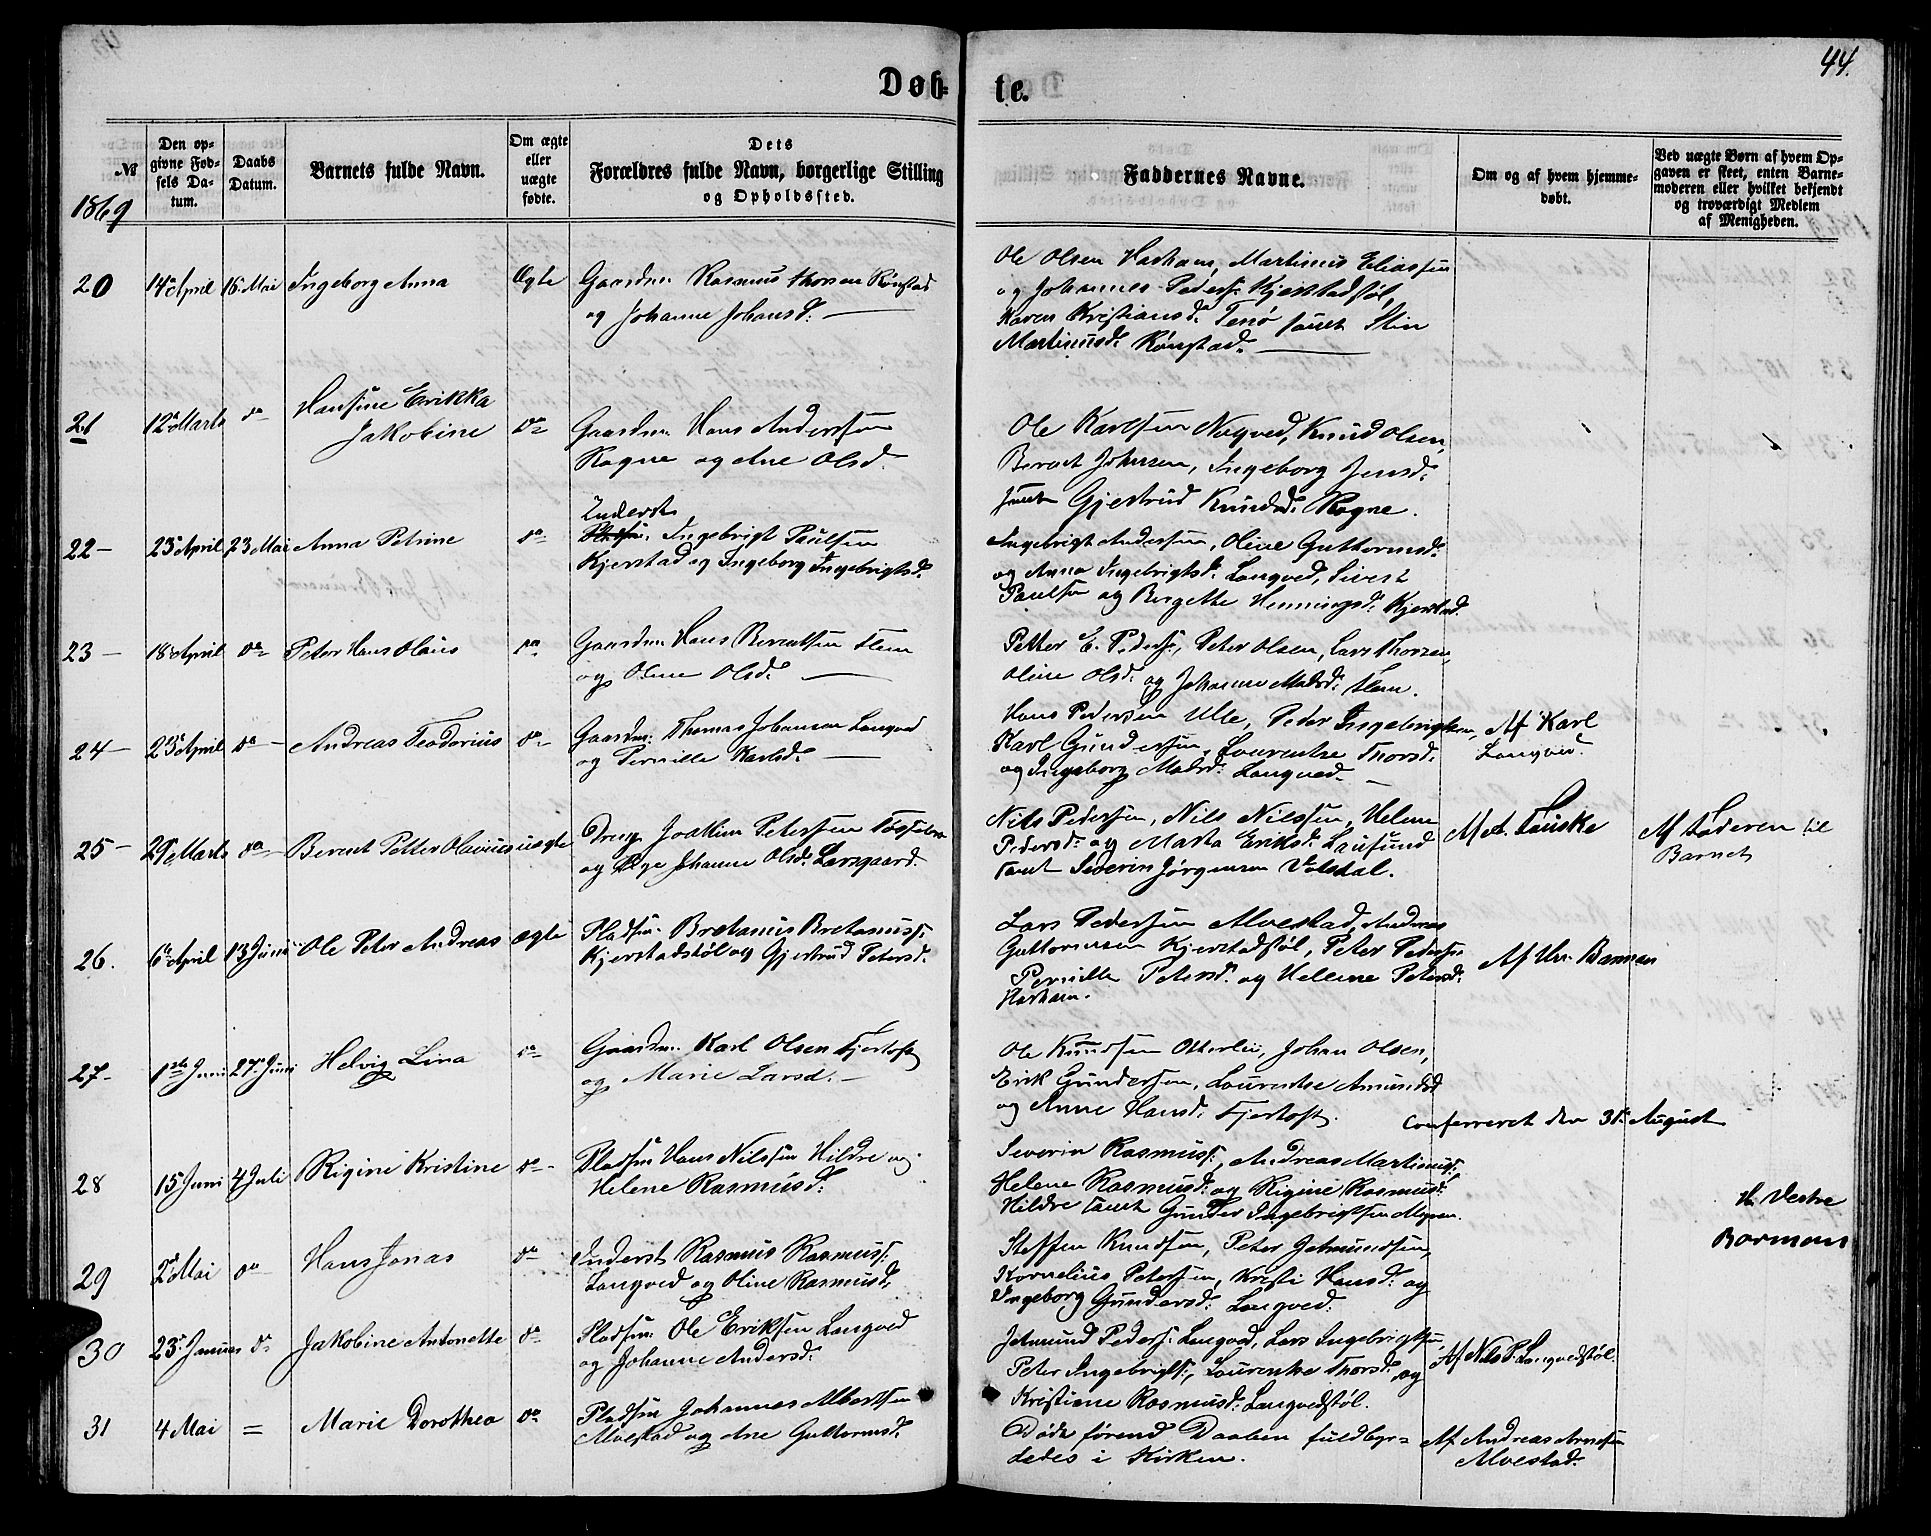 44.
Døb= te.
№
1869
Den op-
givne Fød-
sels Da-
tum.
Daabs
Datum.
Barnets fulde Navn.
Om ægte
eller
uægte
fødte.
Dets
Forældres fulde Navn, borgerlige Stilling
og Opholdssted.
Faddernes Navne.
Om og af hvem hjemme-
døbt.
Ved uægte Børn af hvem Op-
gaven er skeet, enten Barne-
moderen eller hvilket bekjendt
og troværdigt Medlem
af Menigheden.
20
14de April
16 Mai
Ingeborg Anna
Ægte
Gaardm: Rasmus Thorsen Rønstad
og Johanne Johansd:
Ole Olsen Harham, Martinus Eliassen
og Johannes Peders: Kjerstadstøl,
Karen Kristiansd: samt Stin
Martinusd: Rønstad.
21
12 Marts
do
Hansine Erikka
Jakobine
do
Gaardm: Hans Anderssen
Rogne og Ane Olsd.
Ole Karlsen Nogved, Knud Olsen,
Bernt Johnsen, Ingeborg Jensd:
samt Gjertrud Knudsd: Rogne.
22 -
25 April
23 Mai
Anna Petrine
do
Inderst
Ingebrigt Paulsen
Kjerstad og Ingeborg Ingebrigtsd.
Ingebrigt Andersen, Oline Guttormsd:
og Anna Ingebrigtsd. Longved, Sivert
Paulsen og Bergette Henningsd. Kjerstad.
23 -
18 April
do
Peter Hans Olaus
do
Gaardm: Hans Berentsen Flem
og Oline Olsd.
Petter E. Peders:, Peter Olsen, Lars Thorsen,
Oline Olsd: og Johanne Madsd: Flem.
24 -
23 April
do
Andreas Teodorius
do
Gaardm: Thomas Johansen Longved
og Pernille Karlsd:
Hans Pedersen Ulle, Peder Ingebrigtsen,
Karl Gundersen, Laurentse Thorsd:
og Ingeborg Madsd: Longved.
Af Karl
Longved.
25 -
29 Marts
do
Berent Petter Olavius
uægte
Dreng Joakim Petersen
og Pige Johanne Olsd. Longaard.
Nils Pedersen, Nils Nilssen, Helene
Pedersd: og Marta Eriksd:
samt Severin Jørgensen
A. Fauske
Af Faderen til
Barnet
26.
6 April
13 Juni
Ole Peter Andreas
ægte
Pladsm: Bretanus Bretanuss:
Kjerstadstøl og Gjertrud Petersd.
Lars Pedersen Alvestad, Anders
Guttormsen Kjerstadstøl, Peter Peders:
Pernille Petersd: og Hellene Petersd:
Harham.
Af Hr. Barman
27 -
1ste Juni
27 Juni
Helvig Lina
do
Gaardm: Karl Olsen Fjertoft
og Marie Larsd. -
Ole Knudsen Otterlei, Johan Olsen,
Erik Gundersen, Laurentse Amundsd
og Anne Hansd. Fjertoft.
Confereret den 31 August
28
15 Juni
4 Juli
Rigine Kristine
do
Pladsm Hans Nilssen Hildre og
Helene Rasmusd:
Severin Rasmuss:, Andreas Martinuss:,
Helene Rasmusd: og Rigine Rasmusd:
Hildre samt Gunder Ingebrigtsen
H. Vestre
Barman
29
2 Mai
do
Hans Jonas
do
Inderst Rasmus Rasmuss:
Longved og Oline Rasmusd.
Steffen Knudsen, Peter Jetmundsen,
Kornelius Petersen, Kristi Hansd: og
Ingeborg Gundersd: Longved.
30
23 Januar
do
Jakobine Antonette
do
Pladsm: Ole Eriksen Longved
og Johanne Andersd:
Jetmund Peders: Longved, Lars Ingebrigtsen,
Peter Ingebrigts:, Laurentse Thorsd: og
Kristiane Rasmusd: Longvedstøl.
Af Nils P. Longvedstøl.
31
4 Mai
=
Marie Dorothea
do
Pladsm Johannes Albertsen
Alvestad og Ane Guttormsd.
Døde førend Daaben fuldbyr=
dedes i Kirken.
Af Andreas Arnesen
Alvestad.